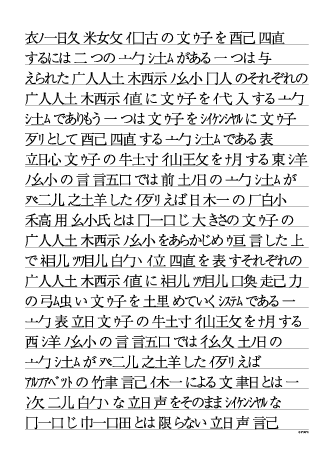 衣ノ一日久 米女攵 亻囗古 の 文 宀子 を 酉己 四直
するには 二 つの 亠勹 システム がある 一 つは 与
えられた 广人人土 木西示 ノ幺小 冂人 のそれぞれの
广人人土 木西示 亻直 に 文 宀子 を 代 入 する 亠勹
システム でありもう 一 つは 文 宀子 を シイケンシヤル に 文 宀子
歹刂 として 酉己 四直 する 亠勹 システム である 表
立日心 文 宀子 の 牛土寸 彳山王攵 を 扌用 する 東 氵羊
ノ幺小 の 言 言五口 では 前 土ノ日 の 亠勹 システム が
癶二儿 之土羊 した 亻歹刂 えば 日 木一 の 厂白小
禾高 用 幺小氏 とは 冂一口 じ 大 きさの 文 宀子 の
广人人土 木西示 ノ幺小 をあらかじめ 言 した 上
で 白勹 亻立 四直 を 表 すそれぞれの
广人人土 木西示 亻直 に 走己 力
の 弓虫 い 文 宀子 を 土里 めていく システム である 一
亠勹 表 立日 文 宀子 の 牛土寸 彳山王攵 を 扌用 する
西 氵羊 ノ幺小 の 言 言五口 では 亻幺久 土ノ日 の
亠勹 システム が 癶二儿 之土羊 した 亻歹刂 えば
アルフアベツト の 竹聿 言己 亻木一 による 文 聿日 とは 一
冫欠 二儿 白勹 な 立日 声 をそのまま シイケンシヤル な
冂一口 じ 巾一口田 とは 限 らない 立日 声 言己